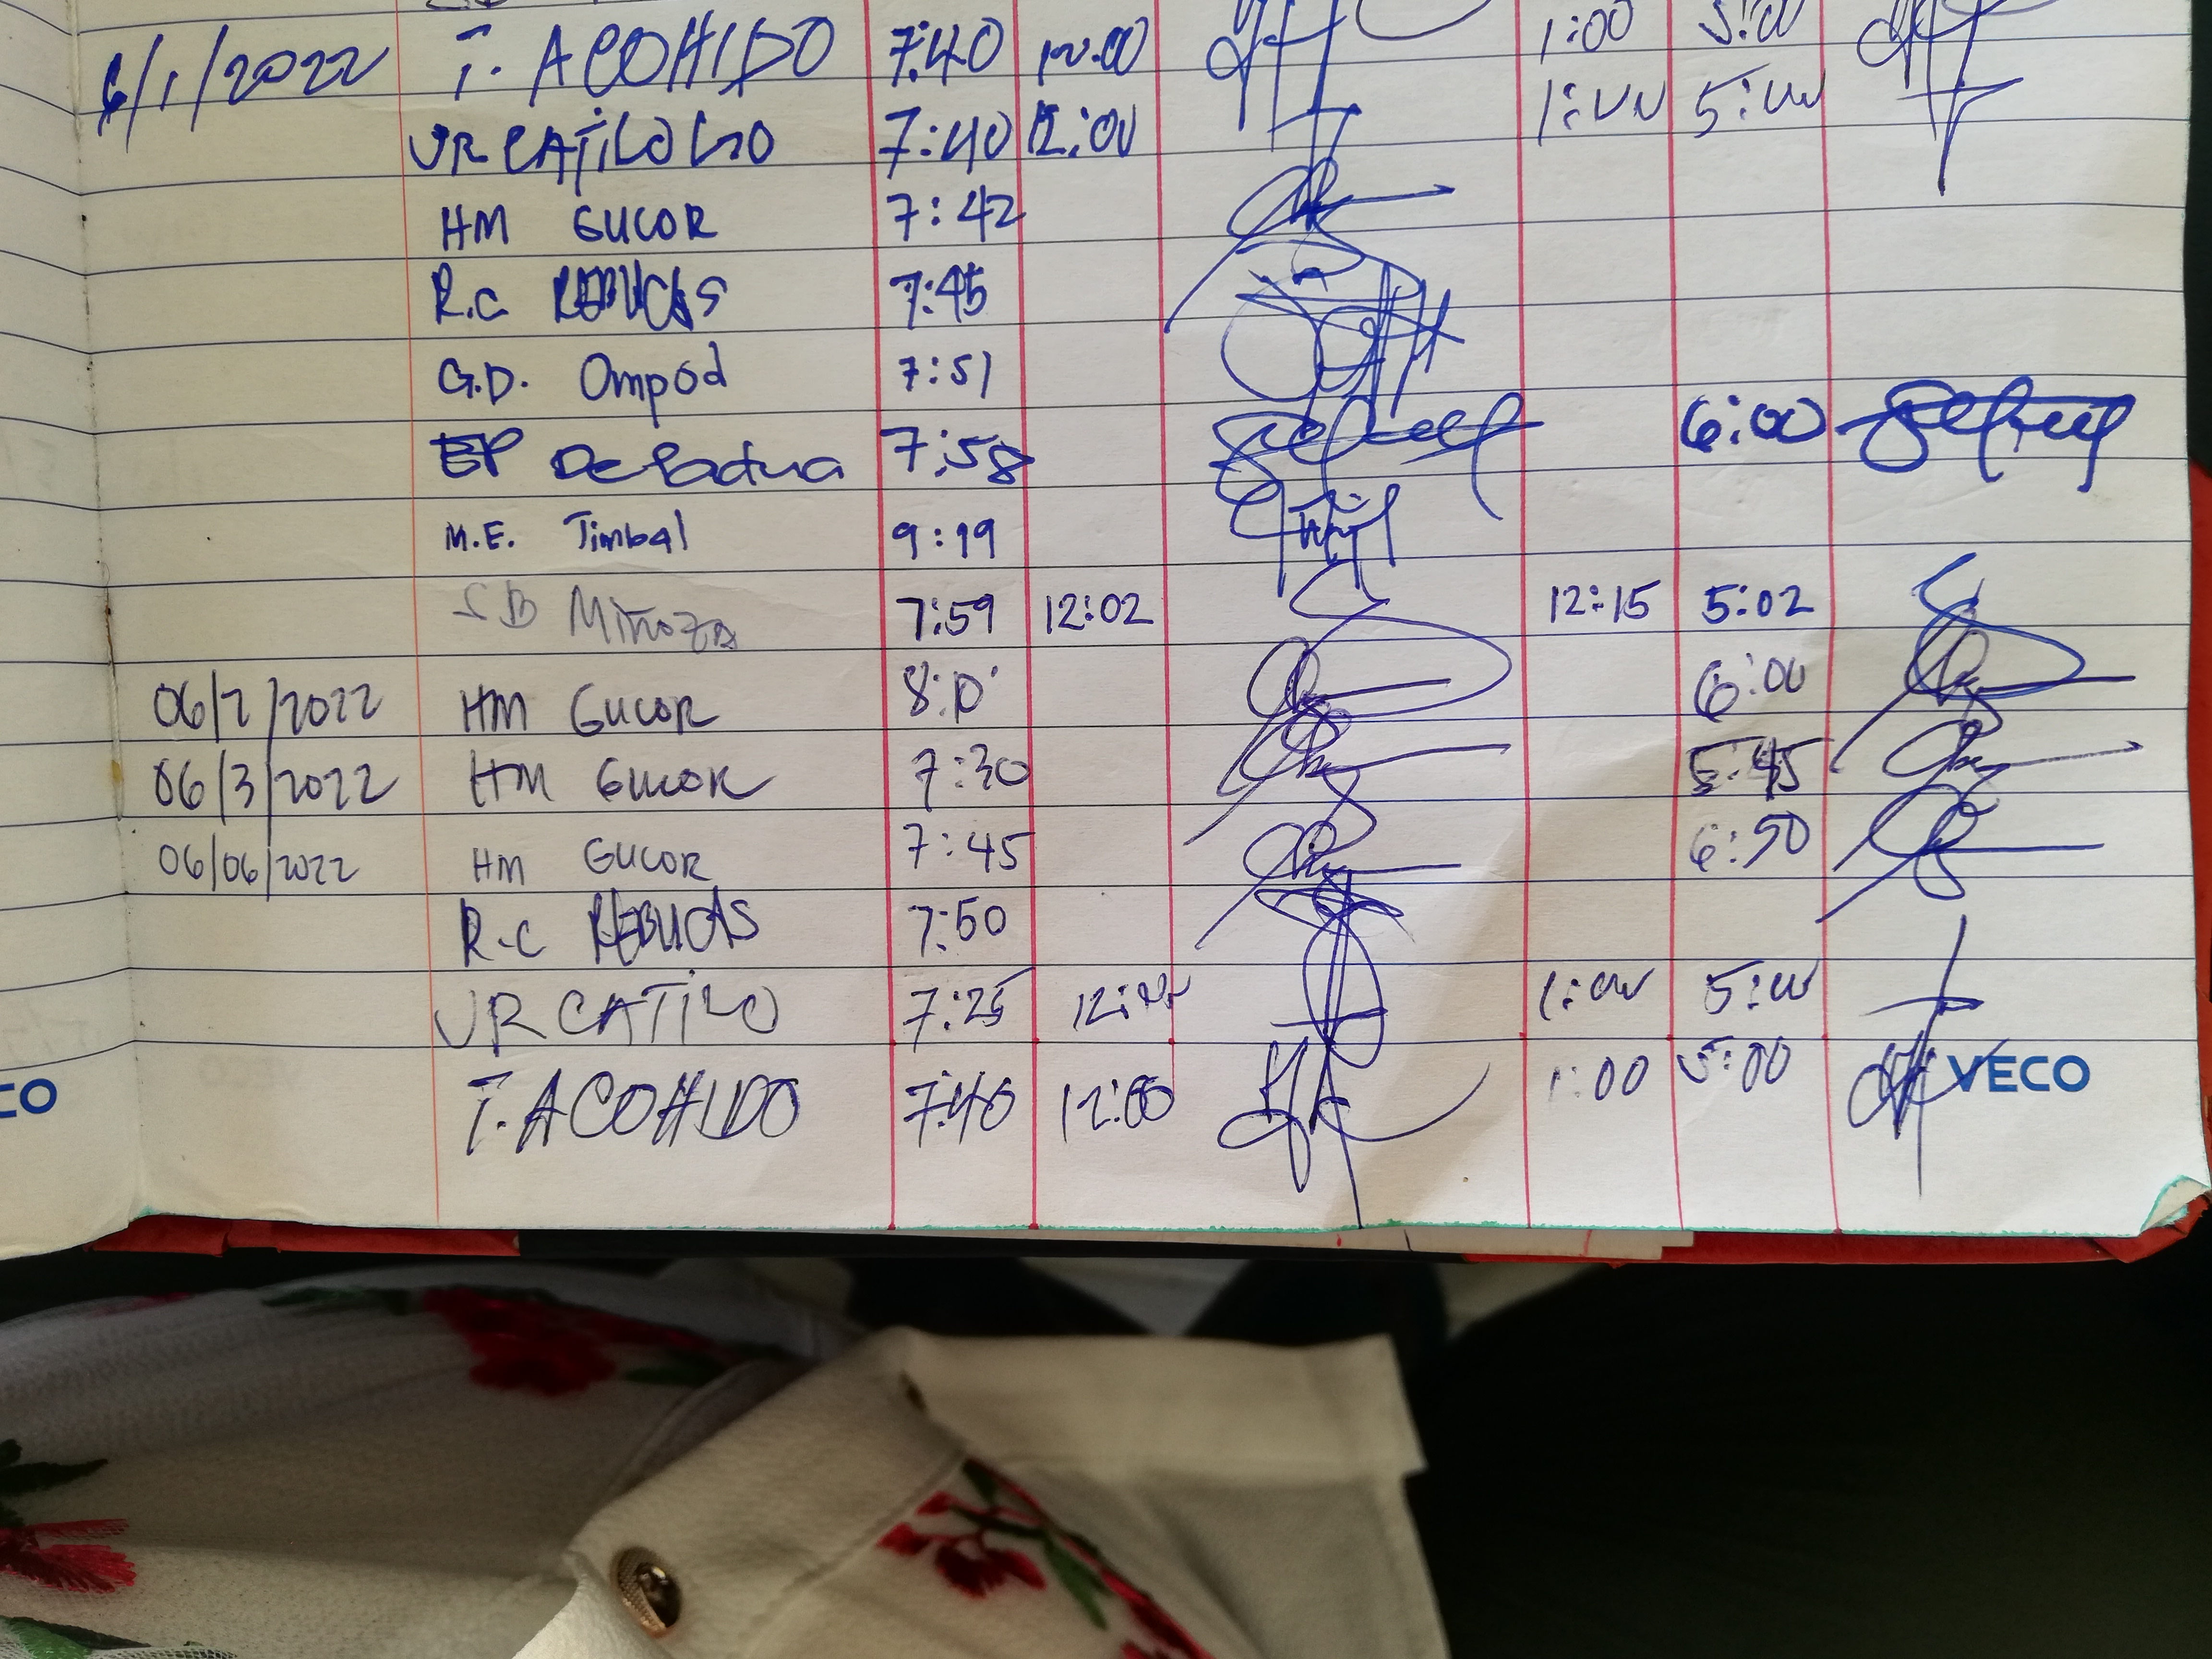 6/1/2022 T. ACOHIDO 7:40 12:00 1:00 5:00
VR CATILOGO 7:40 12:00 1:00 5:00
HM GUCOR 7:42
R.C REBUCAS 7:45
G.D. Ompod 7:51
EP De Padua 7:58 6:00
M.E. Timbal 9:19
SB Miñoza 7:59 12:02 12:15 5:02
06/2/2022 HM GUCOR 6:00
06/3/2022 HM GUCOR 7:30 5:45
06/06/2022 HM GUCOR 7:45 6:50
R.C REBUCAS 7:50
VR CATILO 7:25 12:00 1:00 5:00
T. ACOHIDO 7:40 12:00 1:00 5:00
CO VECO